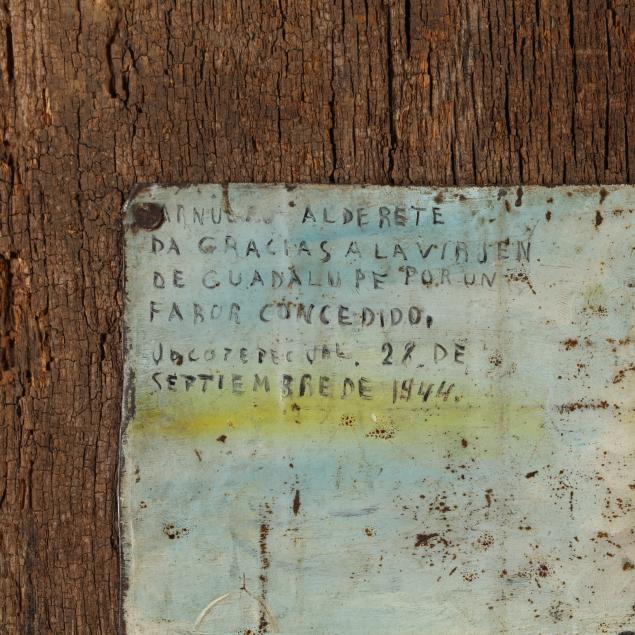 ALDERETE
DA GRACIAS A LA VIRJEN
DE GUADALUPE POR UN
FABOR CONCEDIDO.
28 DE
SEPTIEMBRE DE 1944.